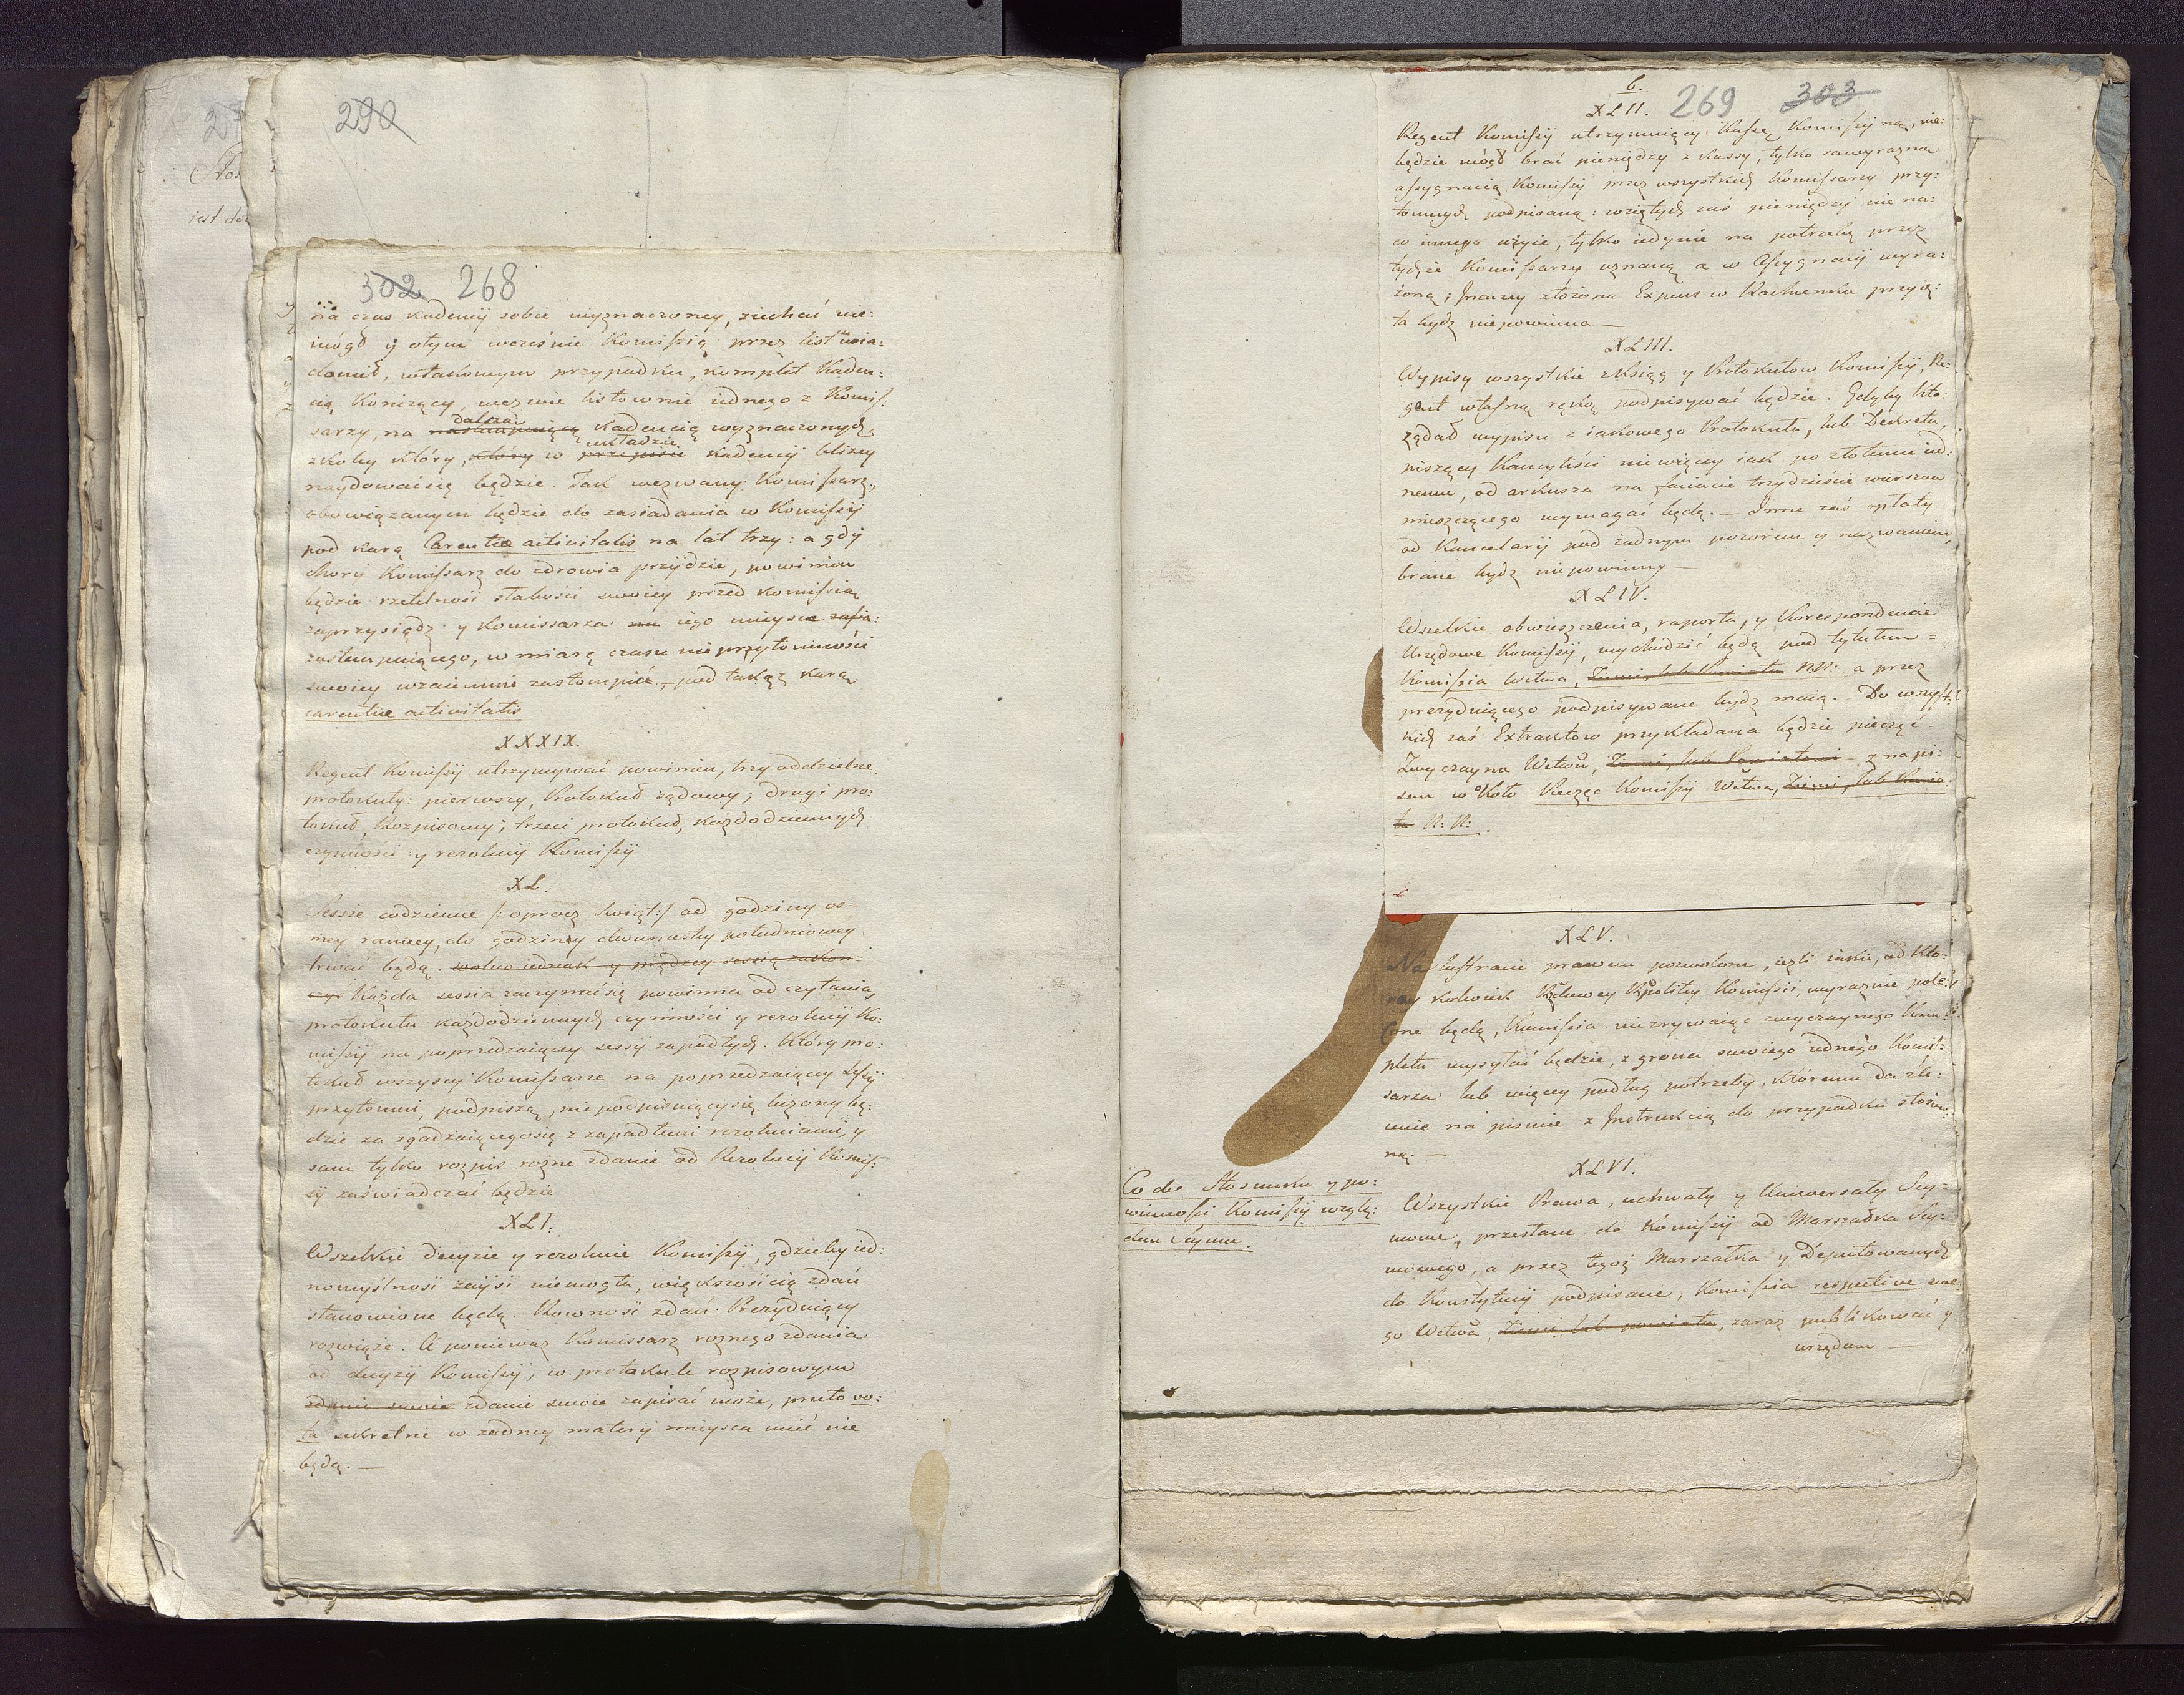 290
302 268
na czas kadencyi sobie wyznaczoney, ziechać nie:
mógł y otym wcześnie Kommissią przez list uwia:
domił, wtakowym przypadku, komplet Kaden:
cią Konczący, wezwie listownie iednego z Komis:
sarzy, na nastempuiącą dalszą kadencią wyznaczonych,
zkoby który, który w przepisie układzie kadencyi bliżey
naydowaćsię będzie. Tak wezwany Komissarz,
obowiązanym będzie do zasiadania w Komissyi
pod karą Carentiæ activitatis na lat trzy: a gdy
chory Komissarz do zdrowia przyidzie, powinien
będzie rzetelność słabości swoiey przed Komissią
zaprzysiądz y Komissarza na iego mieysce zasia:
zastempuiącego, w miarę czasu nieprzytomności
swoiey wzaiemnie zastompić, pod takąż karą
carentiæ activitatis
XXXIX.
Regent Komissyi utrzymywać powinien, trzy oddzielne
protokuły: pierwszy, Protokuł sądowy; drugi pro:
tokuł, Rozpisowy; trzeci protokuł, każdodziennych
czynności y rezolucyi Komissyi
XL.
Sessie codzienne /: oprocz Swiąt:/ od godziny os=
mey ranney, do godziny dwunastey południowey
trwać będą. wolno iednak y prędzey sessią zakon=
czyć Każda sessia zaczynaćsię powinna od czytania
protokułu każdodziennych czynności y rezolucyi Ko:
missyi na poprzedzaiącey sessyi zapadłych. Który pro:
tokuł wszyscy Komissarze na poprzedzaiącey sessyi
przytomni, podpiszą, nie podpisuiącysię liczony bę:
dzie za zgadzaiącegosię z zapadłemi rezoluciami, y
sam tylko rozpis rożne zdanie od Rezolucyi Komis:
syi zaświadczać będzie
XLI.
Wszelkie decyzie y rezolucie Komissyi, gdzieby ied:
nomyślność zayść niemogła, większością zdań
stanowione będą. Rowność zdań Prezyduiący
rozwiąże. A ponieważ Komissarz rożnego zdania
od decyzyi Komissyi, w protokule rozpisowym
zdanie swoie zdanie swoie zapisać może, przeto vo:
ta sekretne w żadney materyi mieysca mieć nie
będą. —
6.
XLII. 269 303
Regent Komissyi utrzymuiący Kassę Komissyiną, nie:
będzie mógł brać pieniędzy z Kassy, tylko zawyrazną
assygnacią Komissyi przez wszystkich Komissarzy przy:
tomnych podpisaną: wziętych zaś pieniędzy nie na:
co innego użyie, tylko iedynie na potrzebę przez
tychże Komissarzy uznaną a w Assygnacyi wyra:
żoną; Inaczey złożona Expens w Rachunku przyię:
ta bydź niepowinna —
XLIII.
Wypisy wszystkie z Ksiąg y Protokułow Komissyi, Re:
gent własną ręką podpisywać będzie. Gdyby kto:
żądał wypisu z iakowego Protokułu, lub Dekretu,
piszący Kancyliści niewięcey iak po złotemu ied:
nemu, od arkusza na faciacie trzydzieście wierszow
mieszczącego wymagać będą. — Inne zaś opłaty
od Kancelaryi pod żadnym pozorem y nazwaniem,
brane bydź niepowinny —
XLIV.
Wszelkie obwieszczenia, raporta, y Korespondencie
Urzędowe Komissyi, wychodzić będą pod tytułem =
Komissia Wctwa, Ziemi, lub Powiatu N.N: a przez
prezyduiącego podpisywane bydź maią. Do wszyst:
kich zaś Extraktow przykładana będzie pieczęć
Zwyczayna Wctwu, Ziemi, lub Powiatowi z napi:
sem w Koło Pieczęc Komissyi Wctwa, Ziemi, lub Powia:
tu N: N: .
XLV.
Na lustracie prawem pozwolone, iezli iakie, od Kto:
rey kolwiek Rządowey Rzpolitey Komissii, wyraznie pole:
cone będą, Komissia niezrywaiąc zwyczaynego Kom:
pletu wysyłać będzie, z grona swoiego iednego Komis:
sarza lub więcey podług potrzeby, któremu da zle:
cenie na pismie z Instrukcią do przypadku stosow:
ną —
Co do Stosunku y po:
winności Komissyi wzglę:
dem Seymu.
XLVI.
Wszystkie Prawa, uchwały y Uniwersały Sey=
mowe, przesłane do Komissyi od Marszałka Sey:
mowego, a przez tegoż Marszałka y Deputowanych
do Konstytucyi podpisane, Komissia respective swe:
go Wctwa, Ziemi, lub powiatu, zaraz publikować y
urzędom —